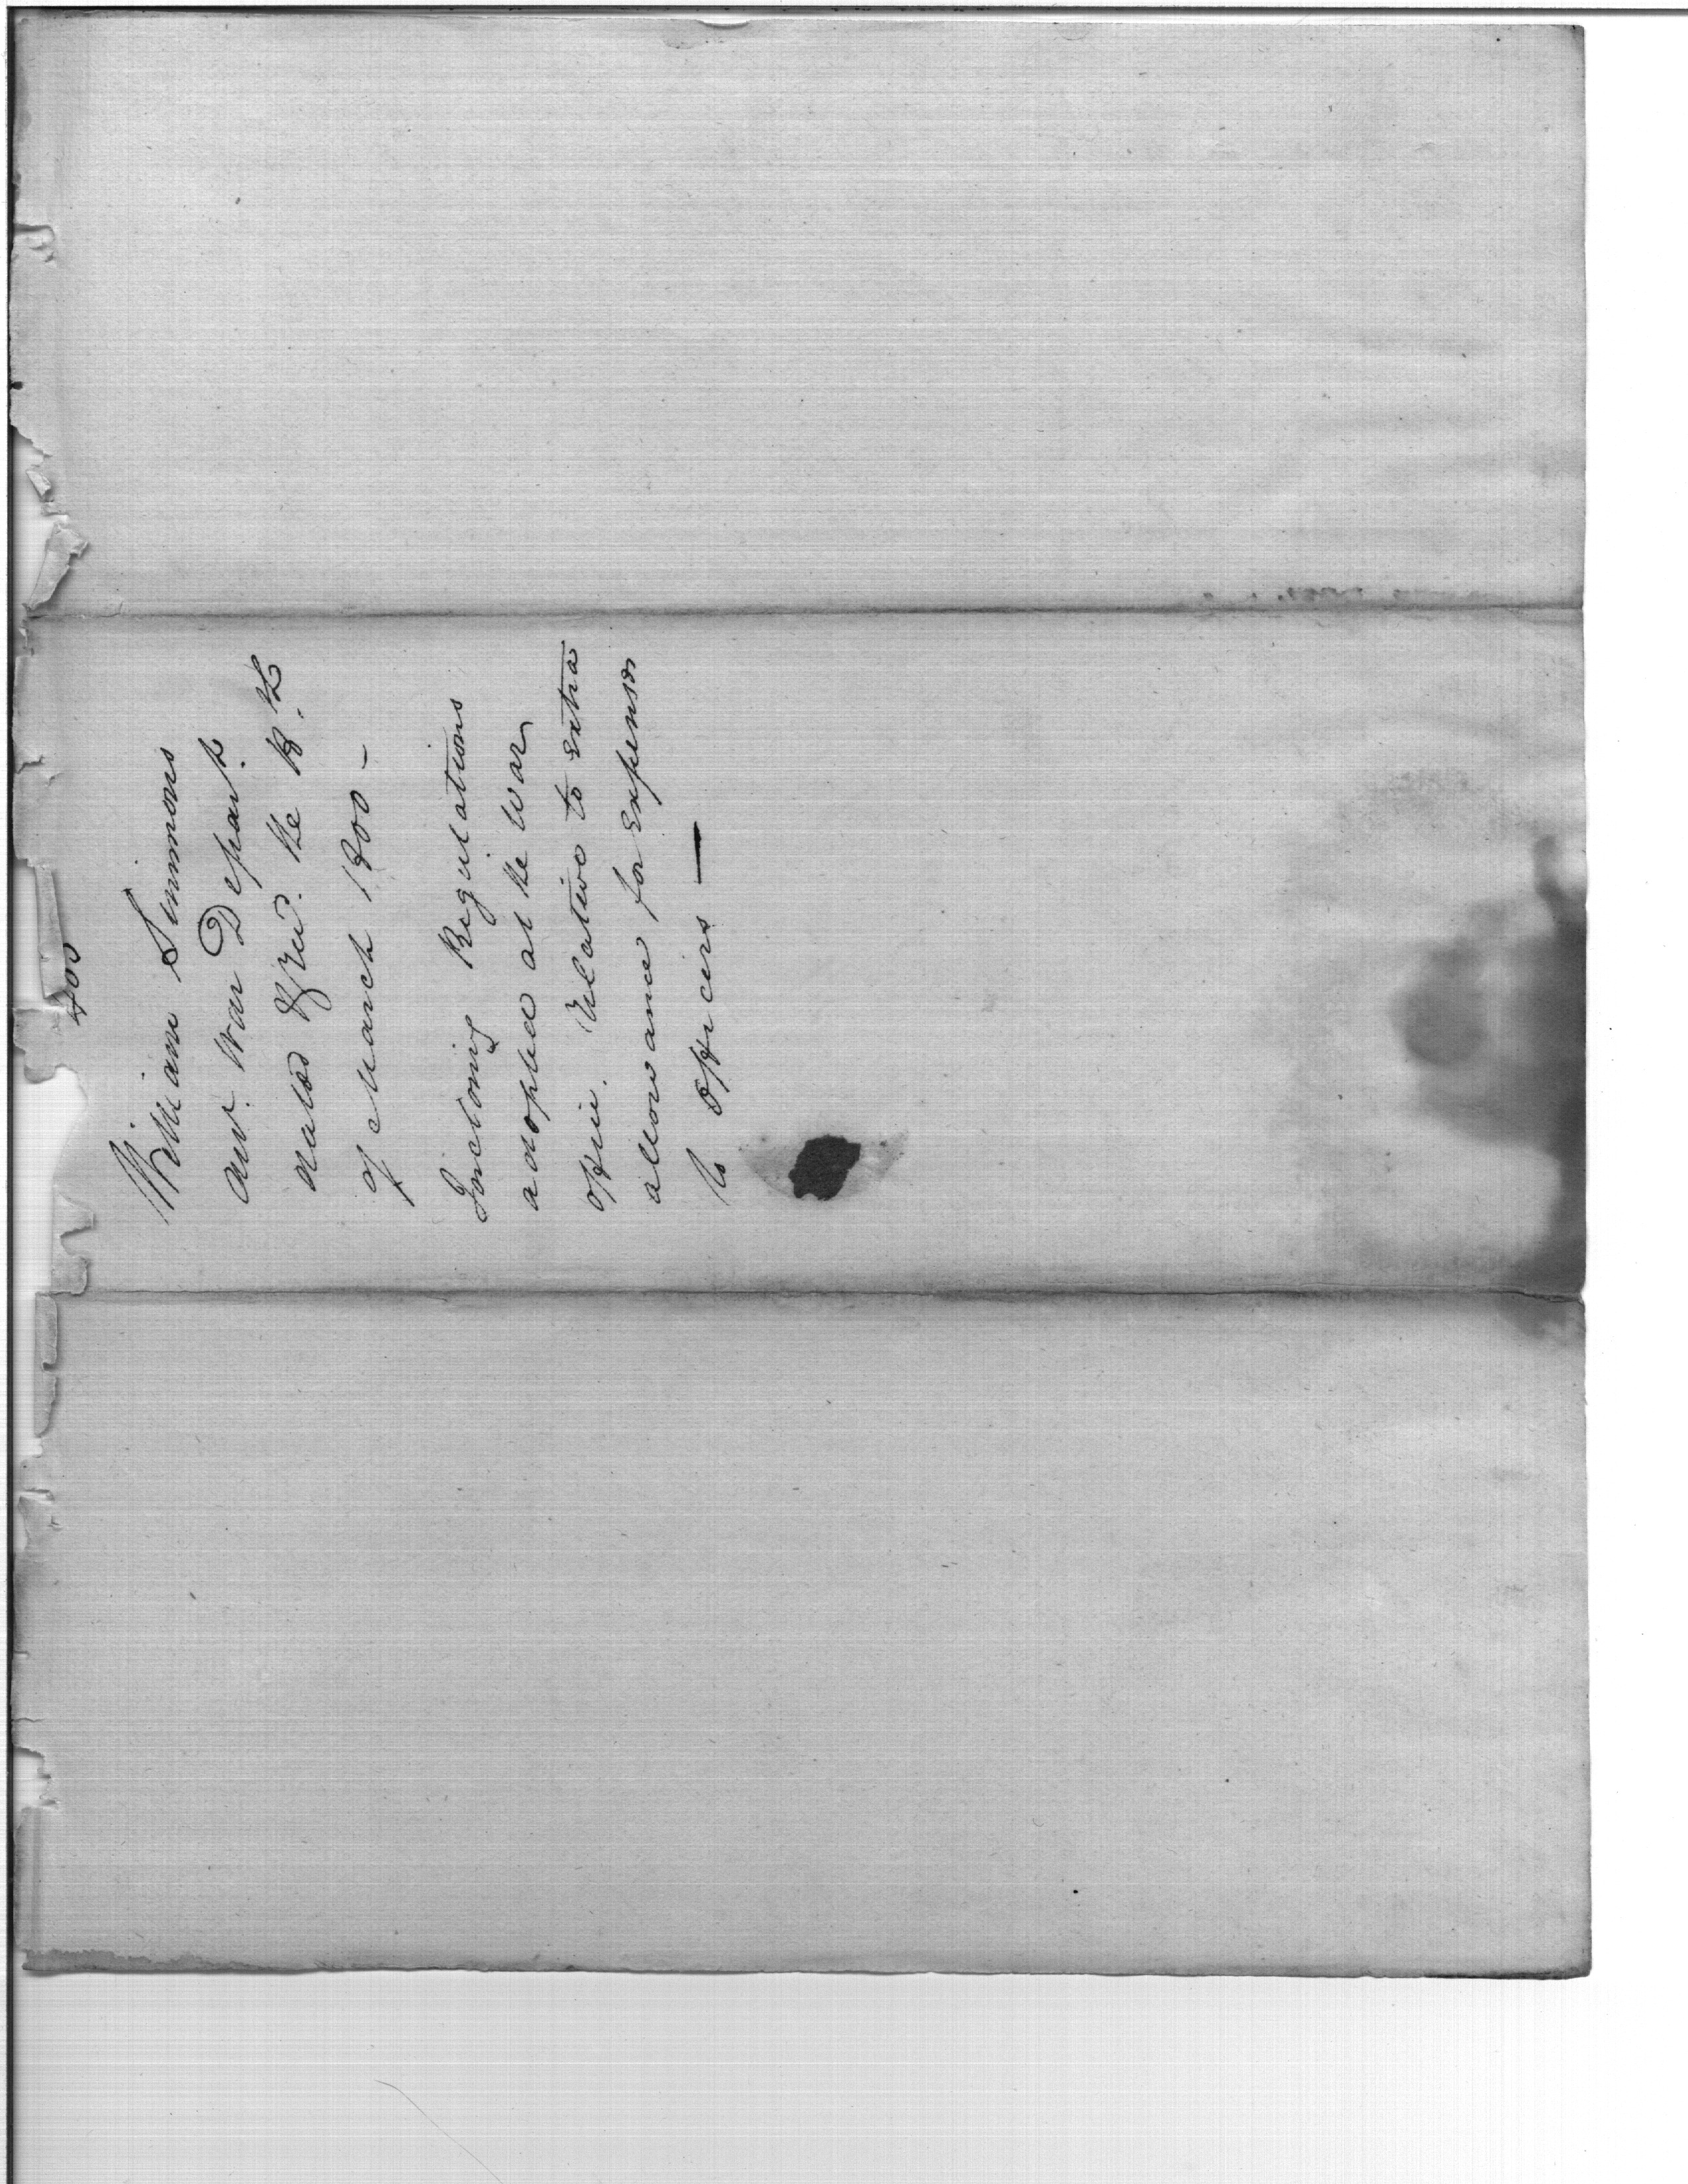 William Simmons
War Depart.t
dated & Rec.d the 18.th
of March 1800 –
Inclosing Regulations
adopted at the War
office. Relative to extra
allowance for expenses
to officers —